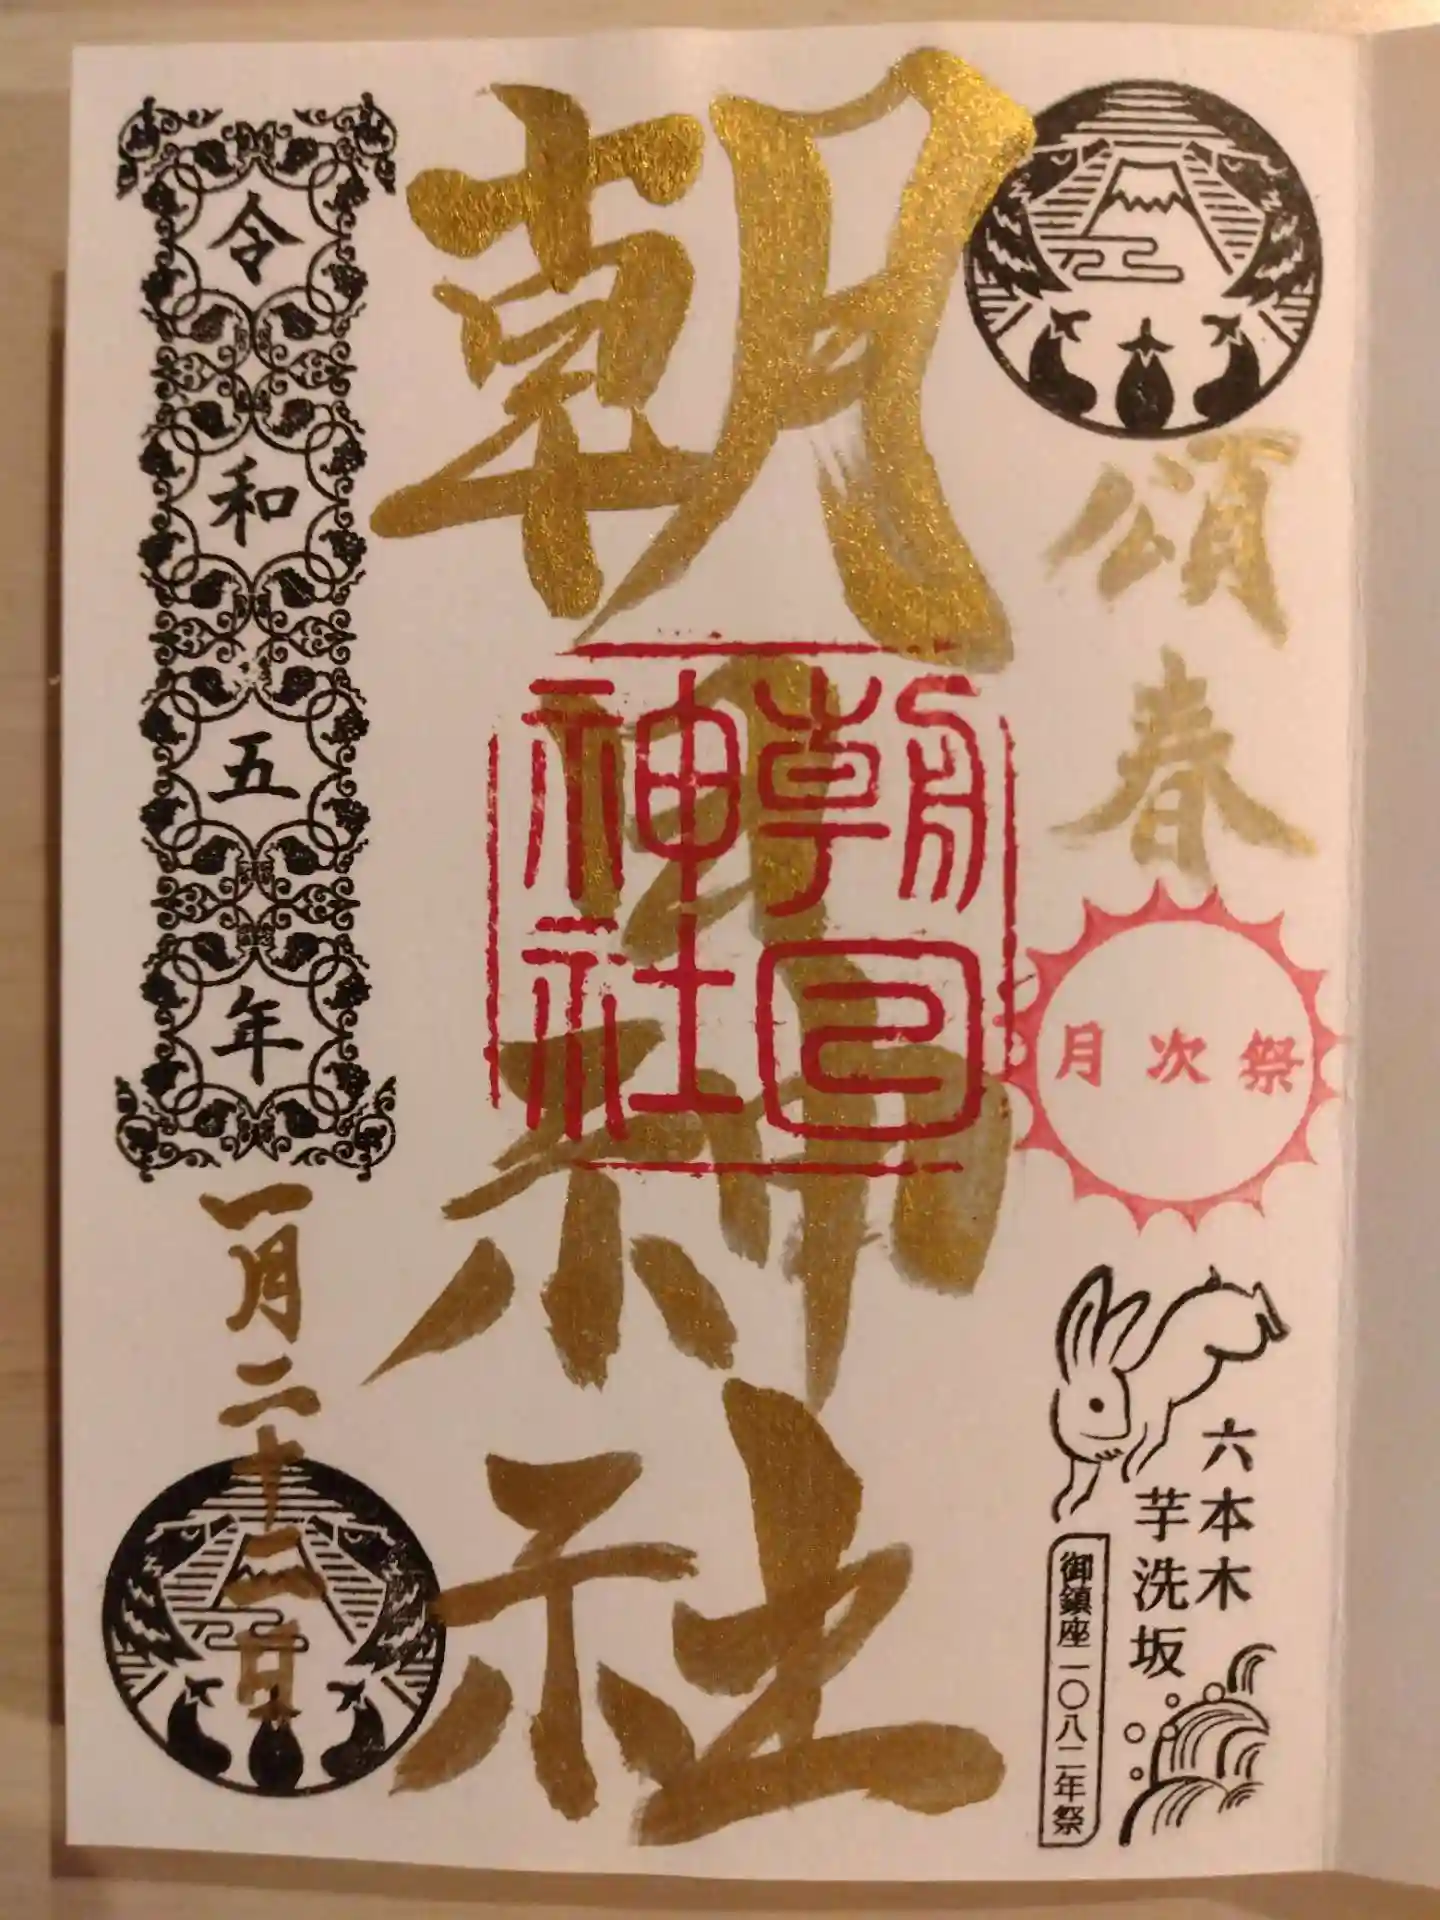 頌春
月次祭
六本木
芋洗坂
御鎮座一〇八二年祭
朝日神社
朝日
神社
令和五年
一月二十二日